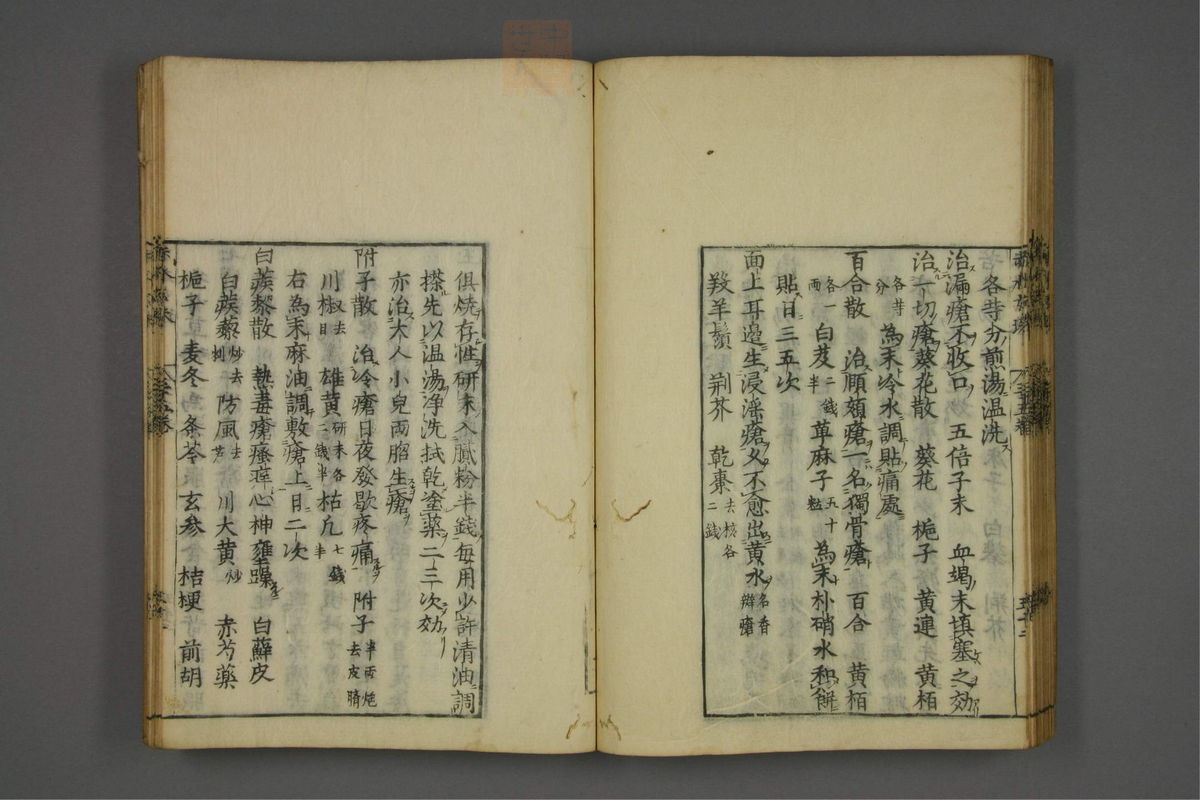 各等分煎湯温洗
治漏瘡不收口 五倍子末 血竭末填塞之効
治一切瘡葵花散 葵花 梔子 黄連 黄栢
各等分 為末冷水調貼痛處
百合散 治頤頬瘡一名獨骨瘡 百合 黄栢
各一両 白芨二錢半 萆麻子五十粒 為末朴硝水和餅
貼日三五次
面上耳邊生浸淫瘡久不愈出黄水名香瓣瘡
羖羊鬚 荆芥 乾棗去核各二錢
俱燒存性研末入膩粉半錢毎用少許清油調
搽先以温湯净洗拭乾塗藥二三次効
亦治大人小兒両脗生瘡
附子散 治冷瘡日夜發歇疼痛 附子半両炮去皮臍
川椒去目 雄黄研末各二錢半 枯凢七錢半
右為末麻油調敷瘡上日二次
白蒺藜散 熱毒瘡瘙痒心神壅躁 白蘚皮
白蒺藜炒去刺 防風去芦 川大黄炒 赤芍藥
梔子 麦冬 条芩 玄参 桔梗 前胡